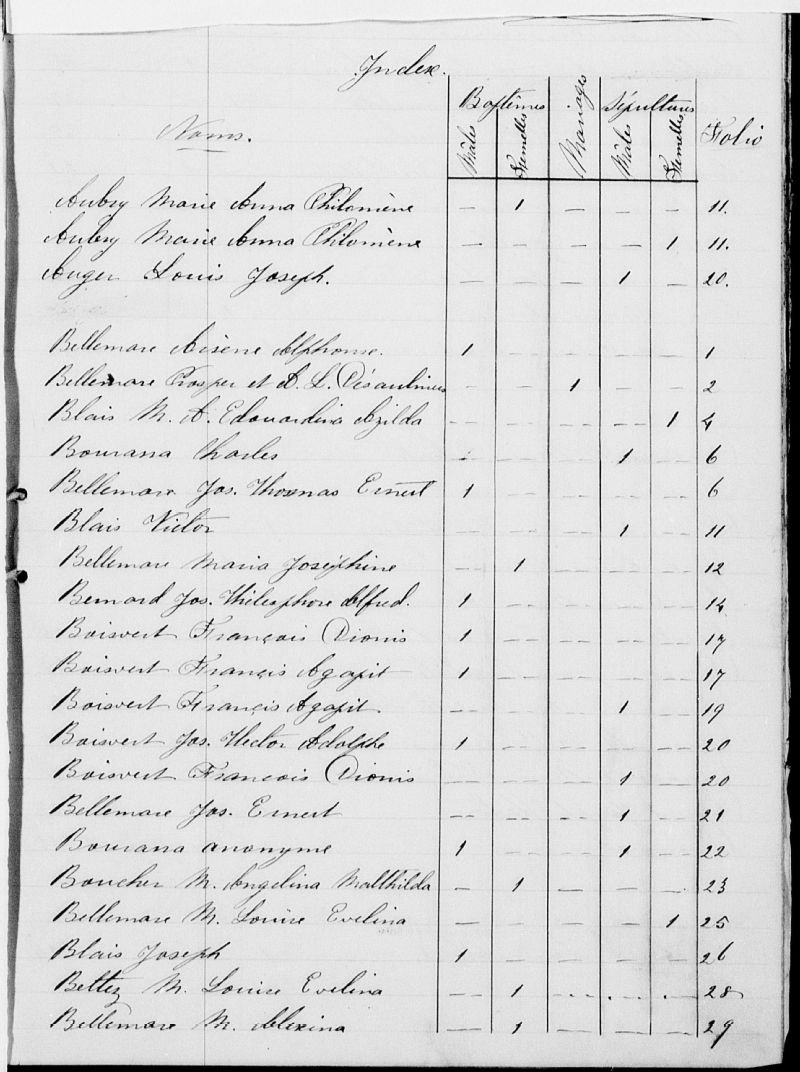 Index.
Noms. Baptêmes Mariages Sépultures Folio
Mâles Femelles Mâles Femelles
Aubry Marie Anna Philomène — 1 — — — 11.
Aubry Marie Anna Philomène — — — — 1 11.
Auger Louis Joseph. — — — 1 — 20.
Bellemare Arsène Alphonse. 1 — — — — 1
Bellemare Prosper et A. L. Désaulniers — — 1 — — 2
Blais M. A. Edouardina Azilda — — — — 1 4
Bourassa Charles — — — 1 — 6
Bellemare Jos. Thomas Ernest 1 — — — — 6
Blais Victor — — — 1 — 11
Bellemare Maria Joséphine — 1 — — — 12
Bernard Jos. Thélesphore Alfred. 1 — — — — 14
Boisvert François Dionis 1 — — — — 17
Boisvert Français Agapit 1 — — — — 17
Boisvert Français Agapit. — — — 1 — 19
Boisvert Jos. Hector Adolphe 1 — — — — 20
Boisvert François Dionis — — — 1 — 20
Bellemare Jos. Ernest — — — 1 — 21
Bourassa anonyme 1 — — 1 — 22
Boucher M. Angelina Malthilda — 1 — — — 23
Bellemare M. Louise Evelina — — — — 1 25
Blais Joseph 1 — — — — 26
Bettez M. Louise Evelina — 1 — — — 28
Bellemare M. Alexina — 1 — — — 29